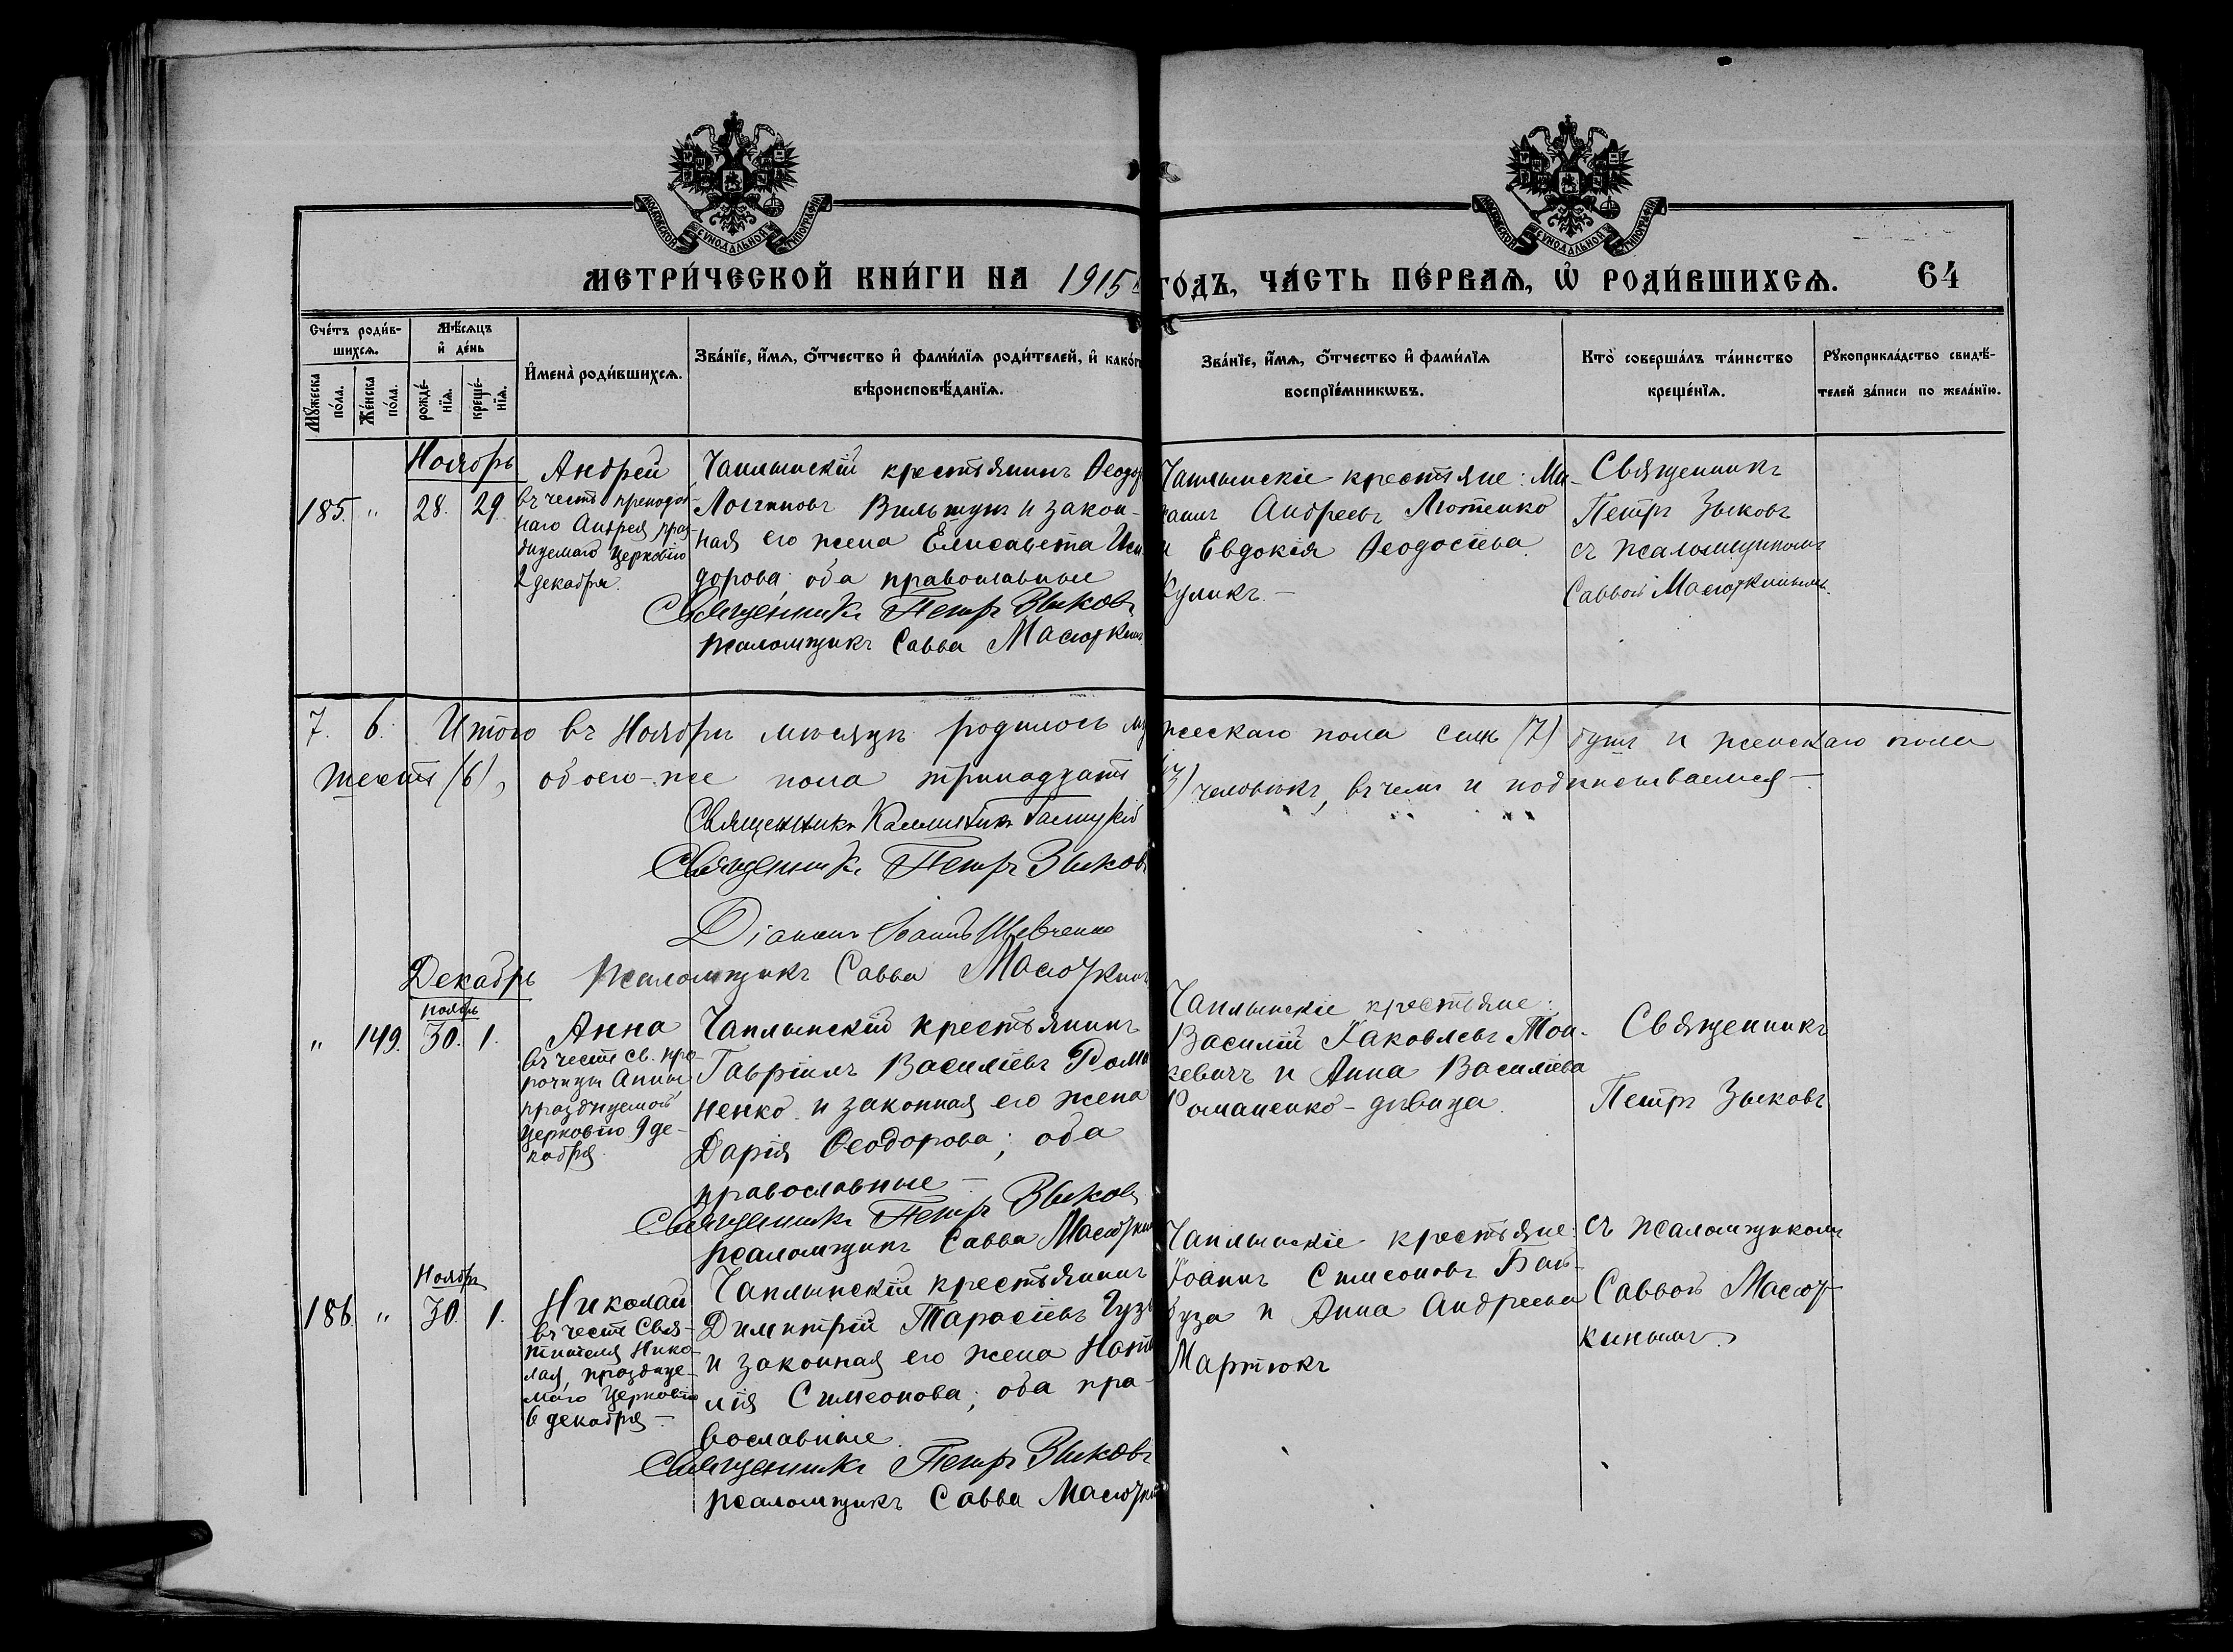 МОСКОВСКОЙ СУНОДАЛЬНОЙ ТИПОГРАФІИ
МОСКОВСКОЙ СУНОДАЛЬНОЙ ТИПОГРАФІИ
МЕТРИ́ЧЕСКОЙ КНИ́ГИ НА 1915
ГО́ДЪ, ЧА́СТЬ ПЕ́РВАЯ, Ѿ РОДИ́ВШИХСЯ. 64
Сче́тъ роди́в-
шихся.
Мꙋ́жеска по́ла.
Же́нска по́ла.
Мѣ́сяцъ
и҆ де́нь
рожде́-нїя.
креще́-нїя.
И҆мена̀ роди́вшихся.
Зва́нїе, и҆́мя, ѻ҆́тчество и҆ фами́лїя роди́телей, и҆ како́г
вѣроисповѣ́данїя.
Зва́нїе, и҆́мя, ѻ҆́тчество и҆ фами́лїя
воспрїе́мникѡвъ.
Кто̀ соверша́лъ та́инство
креще́нїя.
Рꙋкоприкла́дство свидѣ́-
телей за́писи по жела́нїю.
Ноябрь
185. " 28. 29.
Андрей
въ честь преподоб-
наго Андрея, праз-
днуемаго Церковію
2 декабря.
Чаплынскій крестьянинъ Ѳеодо
Логгиновъ Вильтунъ и закон-
ная его жена Елисавета Иси
дорова; оба православные
Священникъ Петръ Зыковъ
Псаломщикъ Савва Масюткинъ
Чаплынскіе крестьяне: Ми-
хаилъ Андреевъ Лютенко
и Евдокія Ѳеодосіева
Куликъ. –
Священникъ
Петръ Зыковъ
съ псаломщикомъ
Саввой Масюткинымъ.
7. 6. Итого въ Ноябрѣ мѣсяцѣ родилось му
жескаго пола семь (7) душъ и женскаго пола
шесть (6), обоего-же пола тринадцать
13) человѣкъ, въ чемъ и подписываемся –
Священникъ Каллиникъ
Священникъ Петръ Зыковъ
Діаконъ Іоаннъ Шевченко
Псаломщикъ Савва Масюткинъ
Декабрь
ноябрь
" 149. 30. 1.
Анна
въ честь св. про-
рочицы Анны
празднуемой
Церковію 9 де-
кабря.
Чаплынскій крестьянинъ
Гавріилъ Василіевъ Рома
ненко и законная его жена
Дарія Ѳеодорова; оба
православные –
Священникъ Петръ Зыковъ
псаломщикъ Савва Масюткин
Чаплынскіе крестьяне:
Василій Іаковлевъ
и Анна Василіева
Романенко – дѣвица.
Священникъ
Петръ Зыковъ
Ноябрь
186. " 30. 1.
Николай
въ честь Свя-
тителя Нико-
лая, празднуе-
маго Церковію
6 декабря –
Чаплынскій крестьянинъ
Димитрій Тарасіевъ Гузь
и законная его жена Ната
лія Симеонова; оба пра-
вославные.
Священникъ Петръ Зыковъ
псаломщикъ Савва Масютки
Чаплынскіе крестьяне:
Іоаннъ Симеоновъ
и Анна Андреева
Мартюкъ
съ псаломщикомъ
Саввой Масют-
кинымъ.